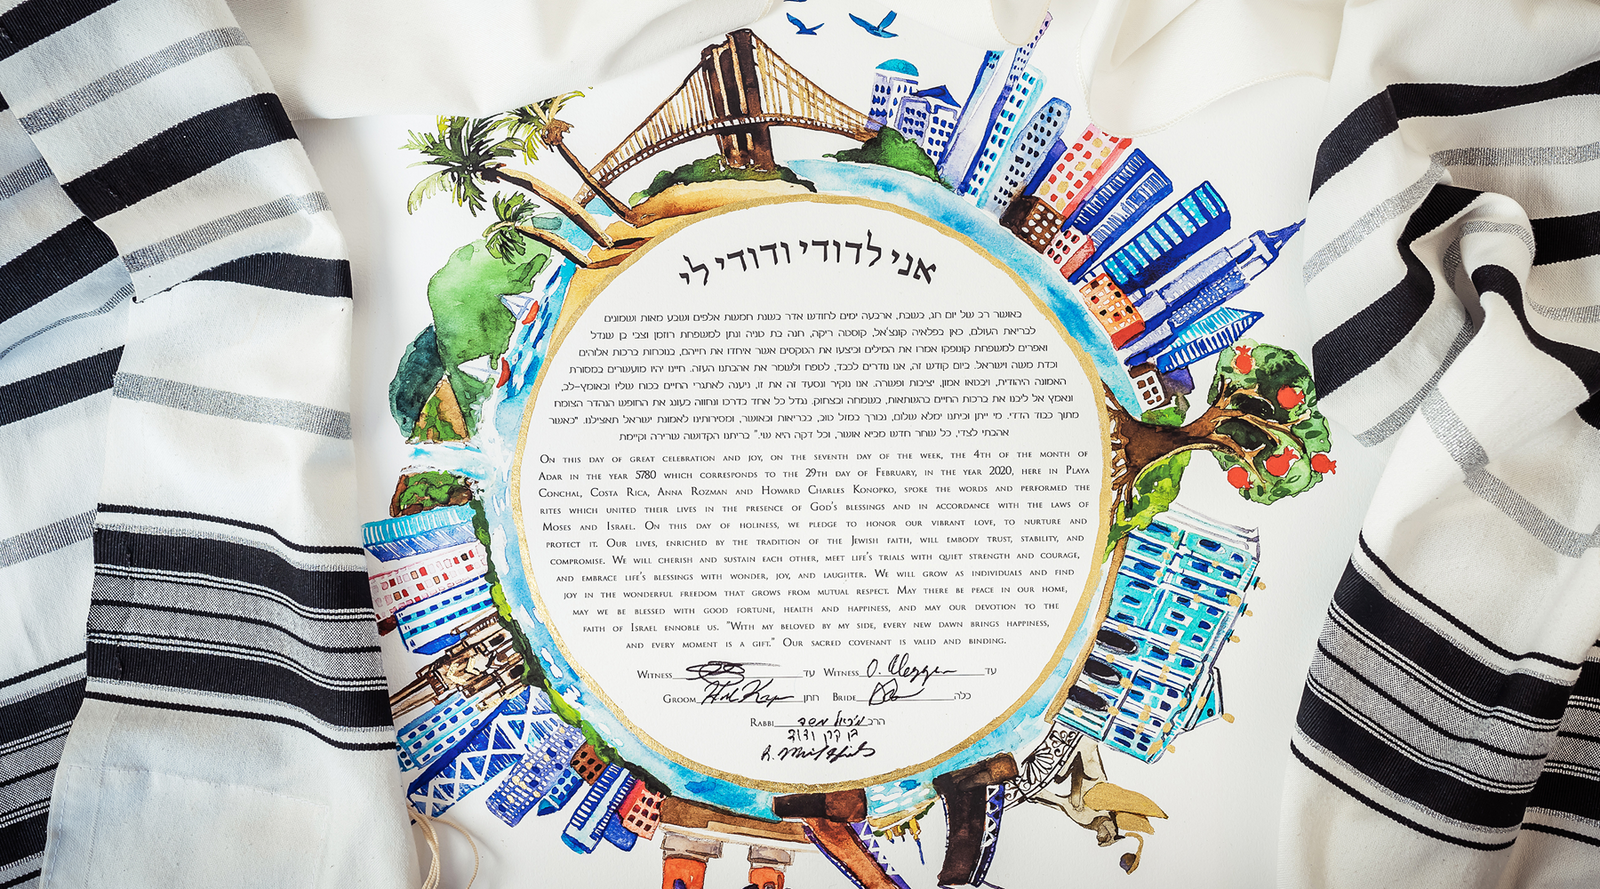 אני לדודי ודודי לי
באושר רב של יום חג, בשבת, ארבעה ימים לחודש אדר בשנת חמשת אלפים ושבע מאות ושמונים
לבריאת העולם, כאן בפלאיה קונצ'אל, קוסטה ריקה, חנה בת טניה ונתן למשפחת רוזמן וצבי בן שנדל
ואפרים למשפחת קונופקו אמרו את המילים וביצעו את הטקסים אשר איחדו את חייהם, בנוכחות ברכות אלוהים
וכדת משה וישראל. ביום קודש זה, אנו נודרים לכבד, לטפח ולשמר את אהבתנו העזה. חיינו יהיו מועשרים במסורת
האמונה היהודית, ויבטאו אמון, יציבות ופשרה. אנו נוקיר ונסעד זה את זו, ניענה לאתגרי החיים בכוח שליו ובאומץ-לב,
ונאמץ אל ליבנו את ברכות החיים בהשתאות, בשמחה ובצחוק. נגדל כל אחד בדרכו ונחווה בעונג את החופש הנהדר הצומח
מתוך כבוד הדדי. מי ייתן וביתנו ימלא שלום, נבורך במזל טוב, בבריאות ובאושר, ומסירותינו לאמונת ישראל תאצילנו. "כאשר
אהבתי לצדי, כל שחר חדש מביא אושר, וכל דקה היא שי." בריתנו הקדושה שרירה וקיימת
On this day of great celebration and joy, on the seventh day of the week, the 4th of the month of
Adar in the year 5780 which corresponds to the 29th day of February, in the year 2020, here in Playa
Conchal, Costa Rica, Anna Rozman and Howard Charles Konopko, spoke the words and performed the
rites which united their lives in the presence of God's blessings and in accordance with the laws of
Moses and Israel. On this day of holiness, we pledge to honor our vibrant love, to nurture and
protect it. Our lives, enriched by the tradition of the Jewish faith, will embody trust, stability, and
compromise. We will cherish and sustain each other, meet life's trials with quiet strength and courage,
and embrace life's blessings with wonder, joy, and laughter. We will grow as individuals and find
joy in the wonderful freedom that grows from mutual respect. May there be peace in our home,
may we be blessed with good fortune, health and happiness, and may our devotion to the
faith of Israel ennoble us. "With my beloved by my side, every new dawn brings happiness,
and every moment is a gift." Our sacred covenant is valid and binding.
Witness עד Witness עד
Groom חתן Bride כלה
Rabbi הרב